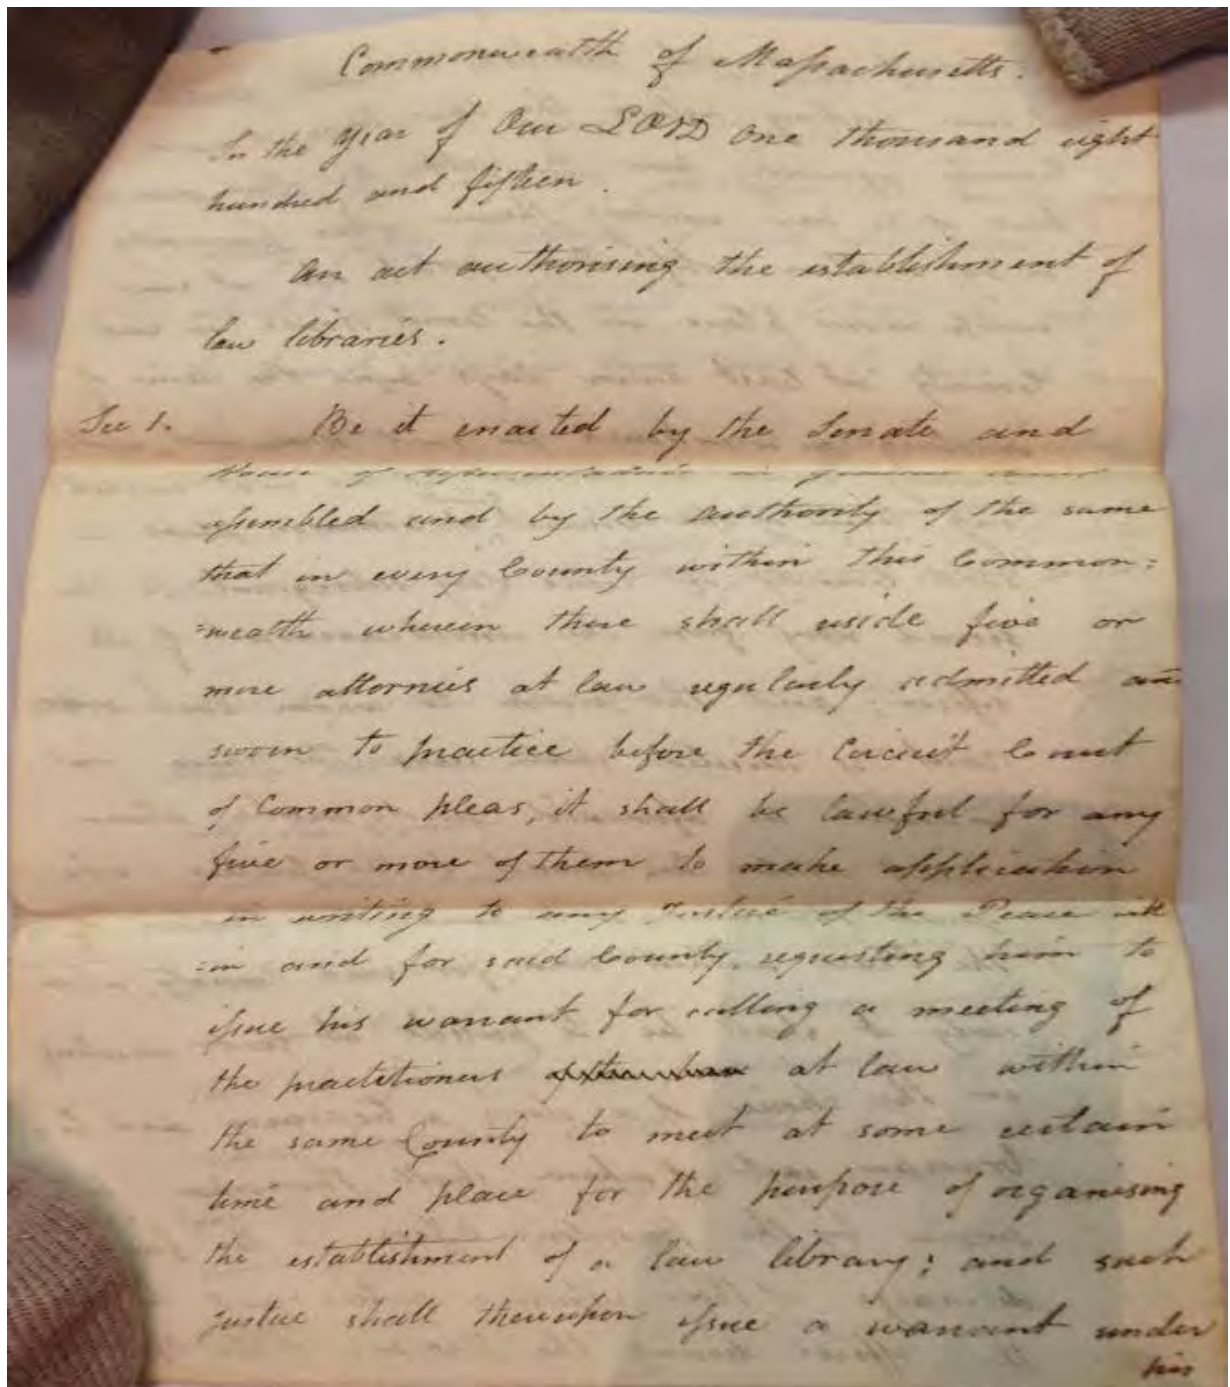 Commonwealth of Massachusetts.
In the year of Our LORD One thousand eight
hundred and fifteen.
An act authorising the establishment of
law libraries.
Sec 1. Be it enacted by the Senate and
House of Representatives in general court
assembled and by the authority of the same
that in every County within this Common=
=wealth wherein there shall reside five or
more attornies at law regularly admitted and
sworn to practice before the Circuit Court
of Common pleas, it shall be lawful for any
five or more of them to make application
in writing to any Justice of the Peace with
=in and for said County, requesting him to
issue his warrant for calling a meeting of
the practitioners at law within
the same County to meet at some certain
time and place for the purpose of organising
the establishment of a law library; and such
justice shall thereupon issue a warrant under
his